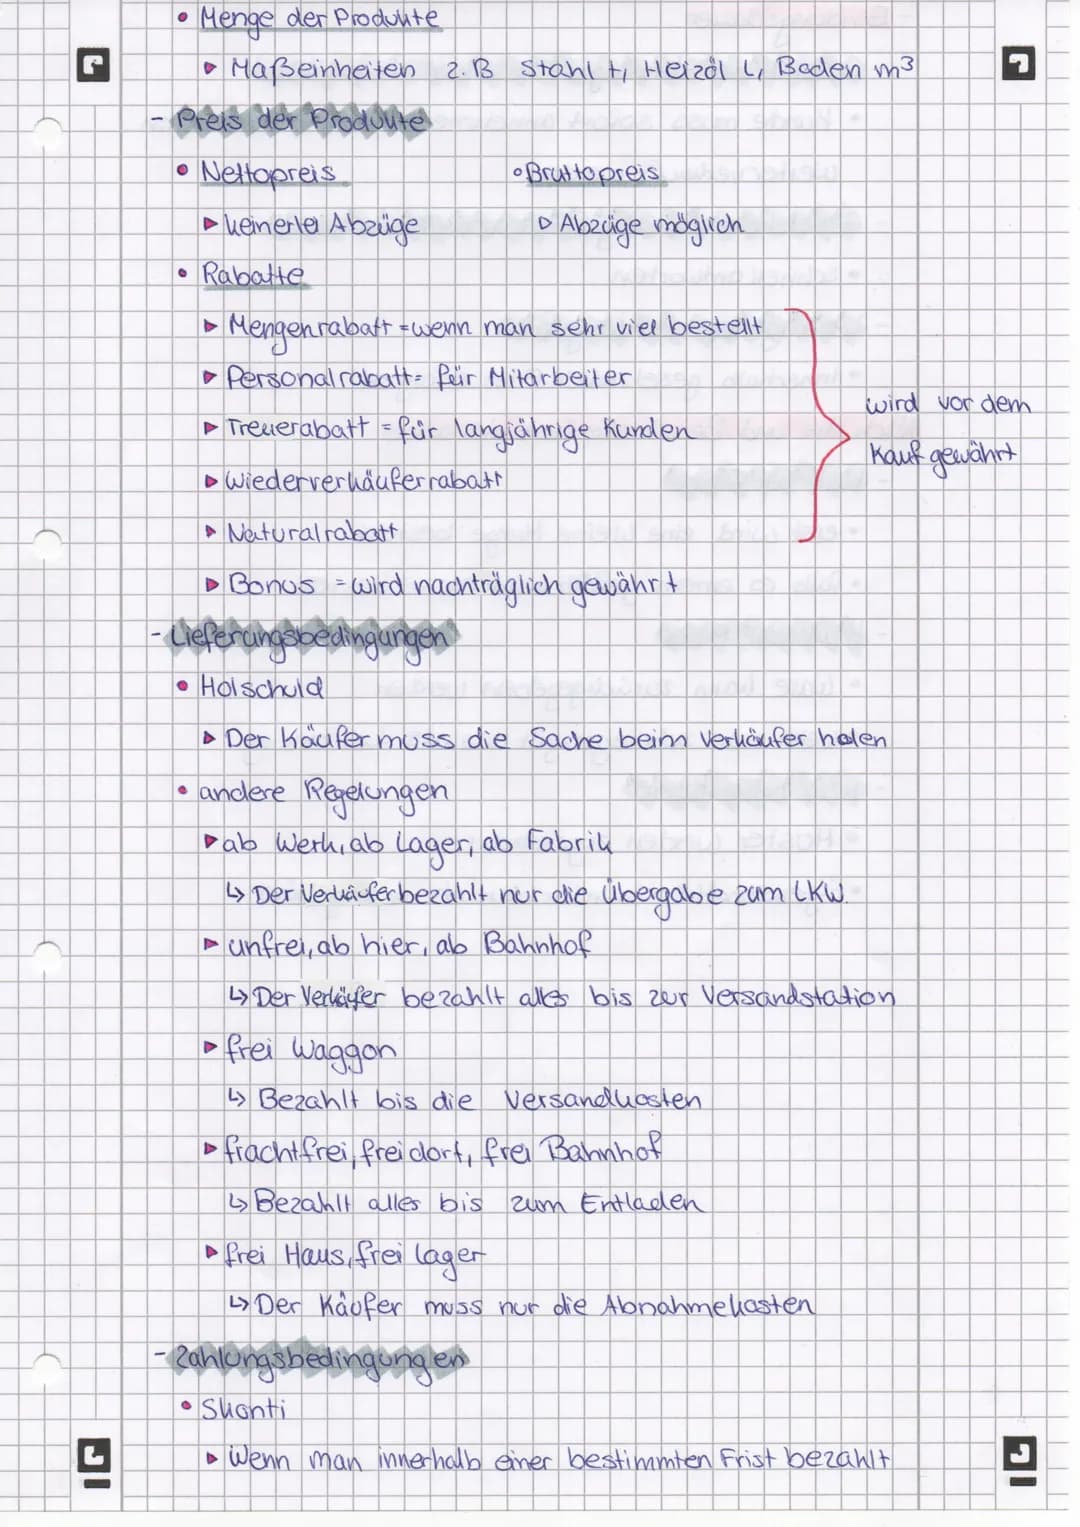 • Menge der Produkte
▸ Maßeinheiten z.B Stahl t, Heizöl L, Boden m³
- Preis der Produkte
• Nettopreis •Bruttopreis
▸ keinerlei Abzüge ▷ Abzüge möglich
• Rabatte
▸ Mengenrabatt =wenn man sehr viel bestellt
▸ Personalrabatt= für Mitarbeiter
▸ Treuerabatt = für langjährige Kunden
▸ Wiederverkäuferrabatt
▸ Naturalrabatt
wird vor dem
Kauf gewährt
▸ Bonus = wird nachträglich gewährt
- Lieferungsbedingungen
• Holschuld
▸ Der Käufer muss die Sache beim Verkäufer holen
• andere Regelungen
▸ ab Werk, ab Lager, ab Fabrik
↳ Der Verkäufer bezahlt nur die Übergabe zum LKW.
▸ unfrei, ab hier, ab Bahnhof
↳ Der Verkäufer bezahlt alles bis zur Versandstation
▸ frei Waggon
↳ Bezahlt bis die Versandkosten
▸ frachtfrei, frei dort, frei Bahnhof
↳ Bezahlt alles bis zum Entladen
▸ frei Haus, frei Lager
↳ Der Käufer muss nur die Abnahmekosten
- Zahlungsbedingungen
• Skonti
▸ Wenn man innerhalb einer bestimmten Frist bezahlt